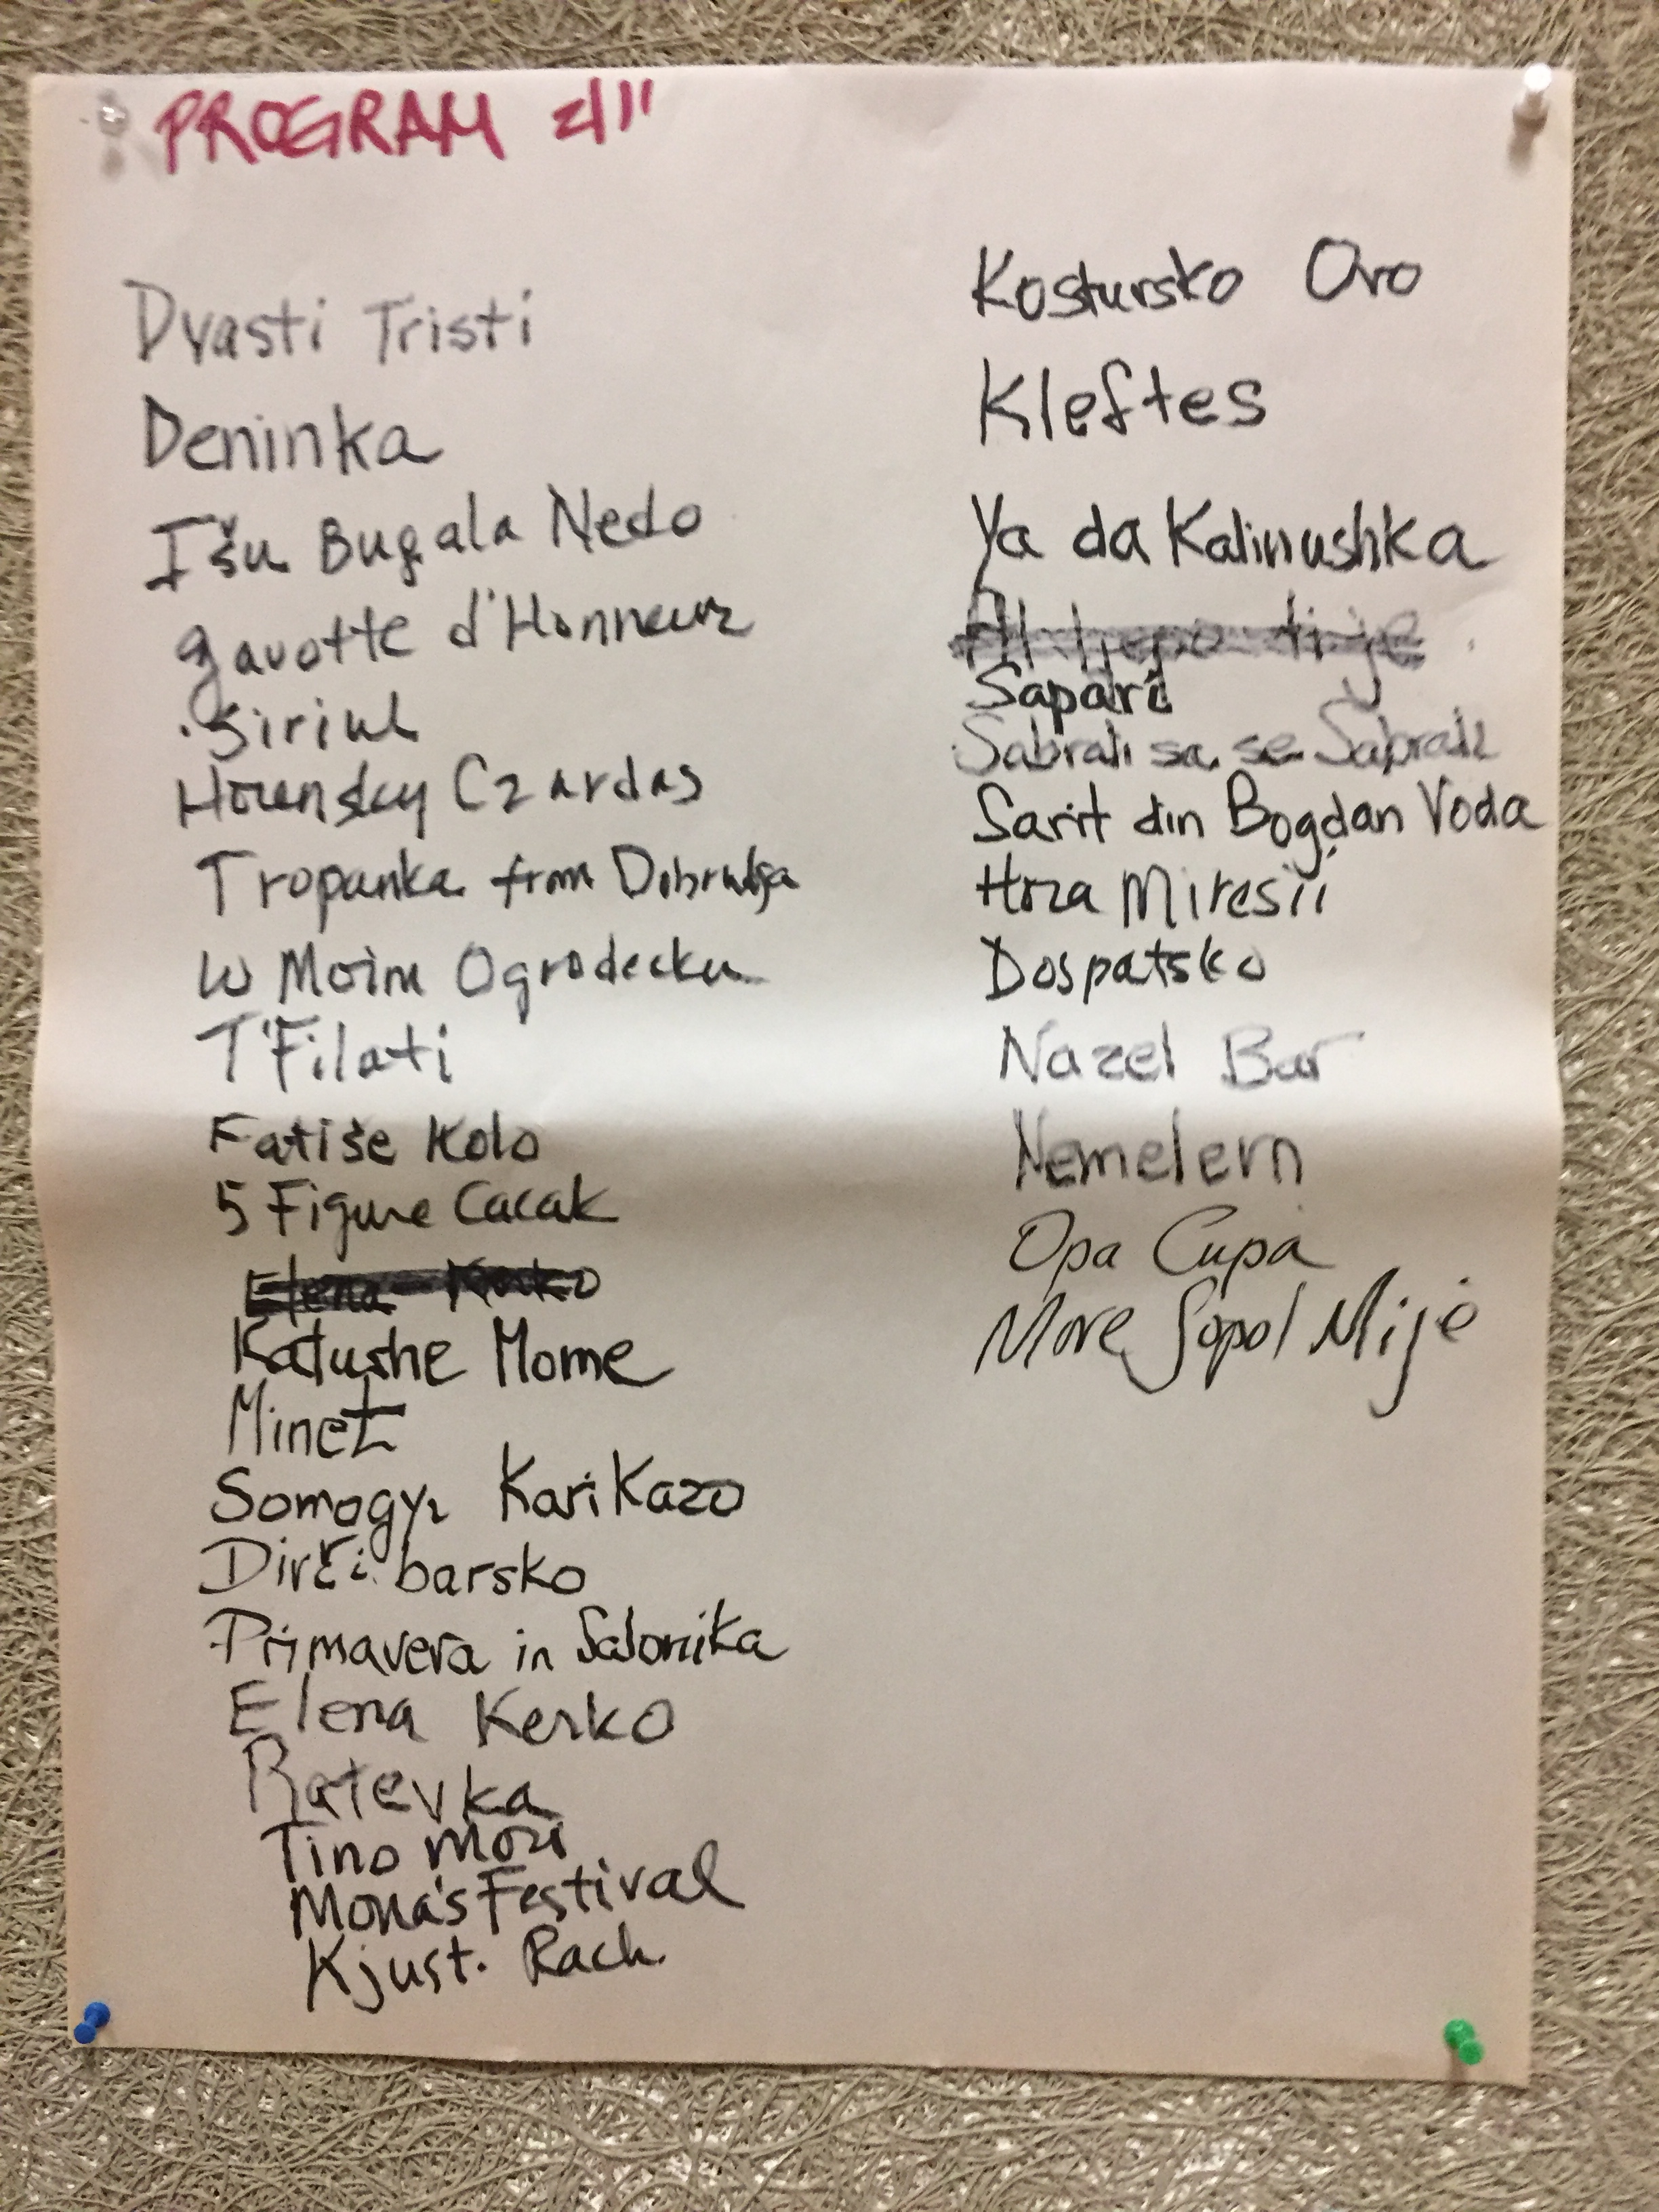 PROGRAM 4/11
Dvasti Tristi
Deninka
Išu Bugala Nedo
gavotte d'Honneur
Siriul
Horensky Czardas
Tropanka from Dobrudja
W Moim Ogrodecku
T'Filati
Fatiše Kolo
5 Figure Cacak
Elena Kerko
Katushe Mome
Minet
Somogyi Karikazo
Dirči barsko
Primavera in Salonika
Elena Kerko
Ratevka
Tino Mori
Mona's Festival
Kjust. Rach.
Kostursko Oro
Kleftes
Ya da Kalinushka
Sapari
Sabrali sa se Sabrali
Sarit din Bogdan Voda
Hora Miresii
Dospatsko
Nazel Bar
Nemelern
Opa Cupa
More Sopol Mije